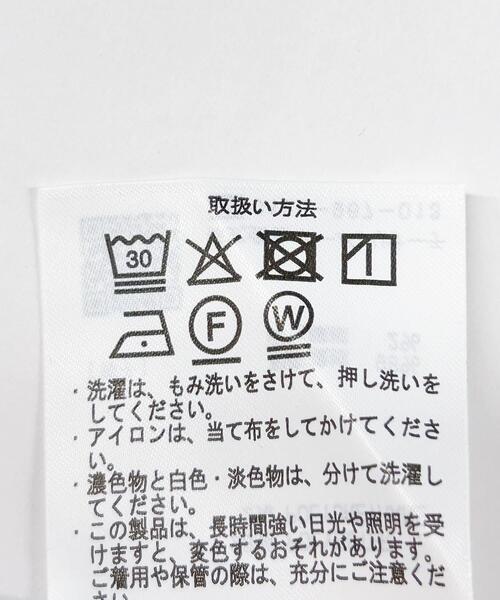 取扱い方法
30
F
W
・洗濯は、もみ洗いをさけて、押し洗いを
してください。
・アイロンは、当て布をしてかけてくださ
い。
・濃色物と白色・淡色物は、分けて洗濯し
てください。
・この製品は、長時間強い日光や照明を受
けますと、変色するおそれがあります。
ご着用や保管の際は、充分にご注意くだ
さい